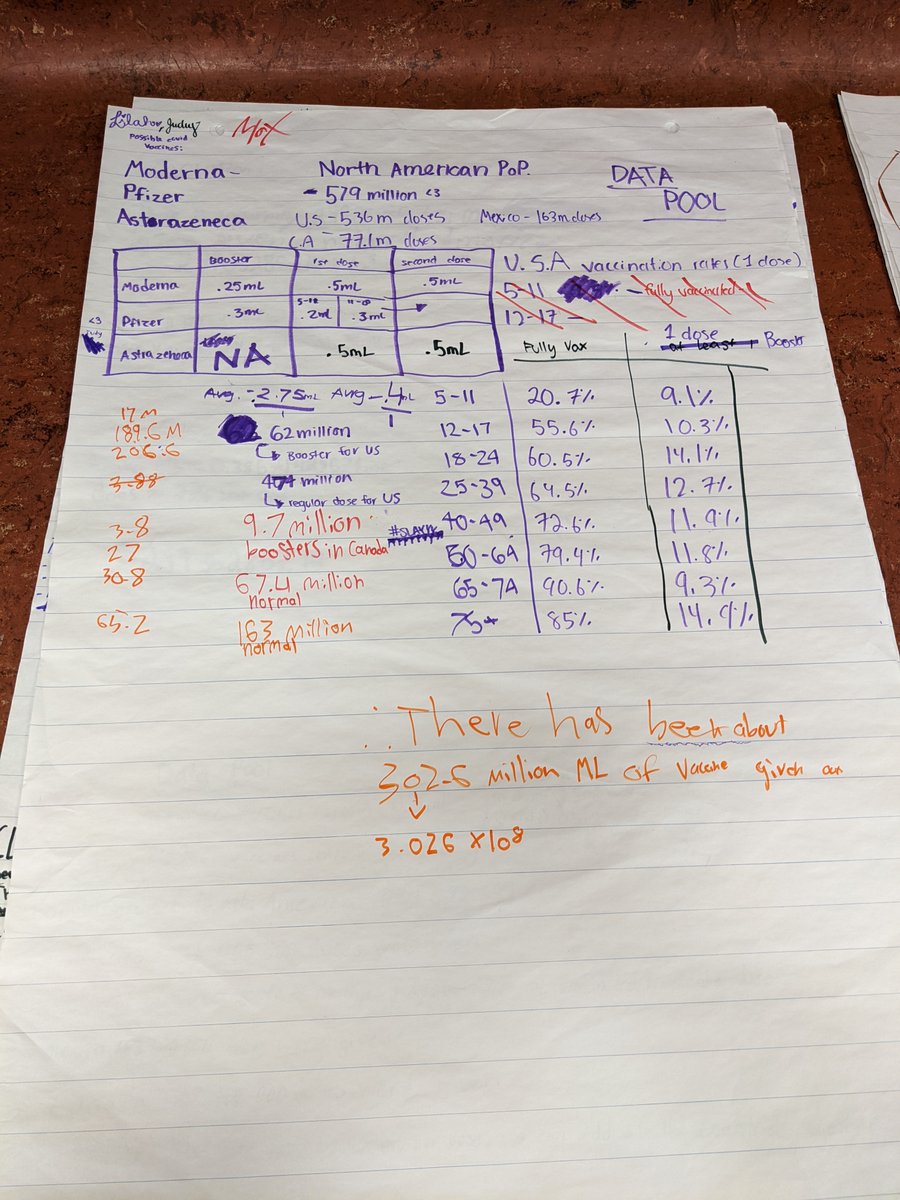 Judy Max
Possible covid
Vaccines:
Moderna -
Pfizer
Astorazeneca
North American PoP.
- 579 million <3
U.S - 536m doses Mexico - 163m doses
CA - 77.1m doses
DATA
POOL
Booster 1st dose second dose
Moderna .25mL .5mL .5mL
Pfizer .3mL .2mL .3mL
<3
Astrazenora NA .5mL .5mL
U.S.A vaccination rates (1 dose)
5-11 - fully vaccinated
12-17 -
Fully Vax 1 dose Booster
at least 1
5-11 20.7% 9.1%
12-17 55.6% 10.3%
18-24 60.5% 14.1%
25-39 64.5% 12.7%
40-49 72.6% 11.9%
50-64 79.4% 11.8%
65-74 90.6% 9.3%
75+ 85% 14.4%
Avg. - 2.75mL Avg - .4mL
1
62 million
Booster for US
474 million
regular dose for US
9.7 million
boosters in Canada
67.4 million
normal
163 million
normal
17 M
189.6 M
206.6
3.88
3.8
27
30.8
65.2
∴ There has been about
302.6 million ML of vaccine given out
3.026 x108